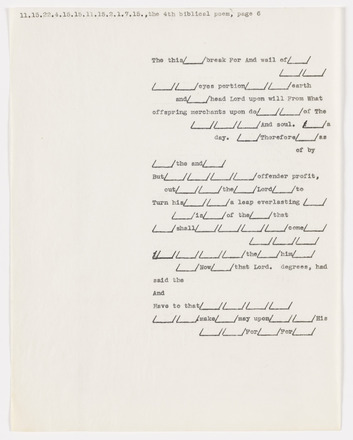 11.15.22.4.15.15.11.15.2.1.7.15.,the 4th biblical poem, page 6
The this/____/break For And wail of/____/
/____//____/
/____//____/eyes portion/____//____/earth
and/____/head Lord upon will From What
offspring merchants upon do/____//____/of The
/____//____//____/And soul. /____/a
day. /____/Therefore/____/as
of by
/____/the and/____/
But/____//____//____//____/offender profit,
out/____//____/the/____/Lord/____/to
Turn his/____//____/a leap everlasting /____/
/____/is/____/of the/____/that
/____/shall/____//____//____//____/come/____/
/____//____//____/
/____//____//____//____/the/____/him/____/
/____/Now/____/that Lord. degrees, had
said the
And
Have to that/____//____//____//____/
/____//____/make/____/may upon/____//____/His
/____//____/For/____/For/____/